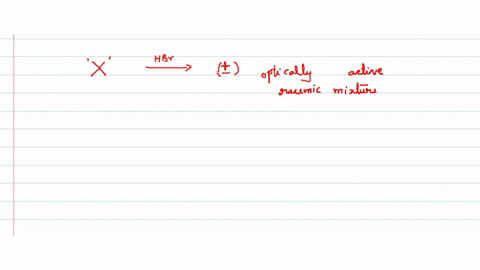 HBr
'X' ⟶ (±) optically active
racemic mixture